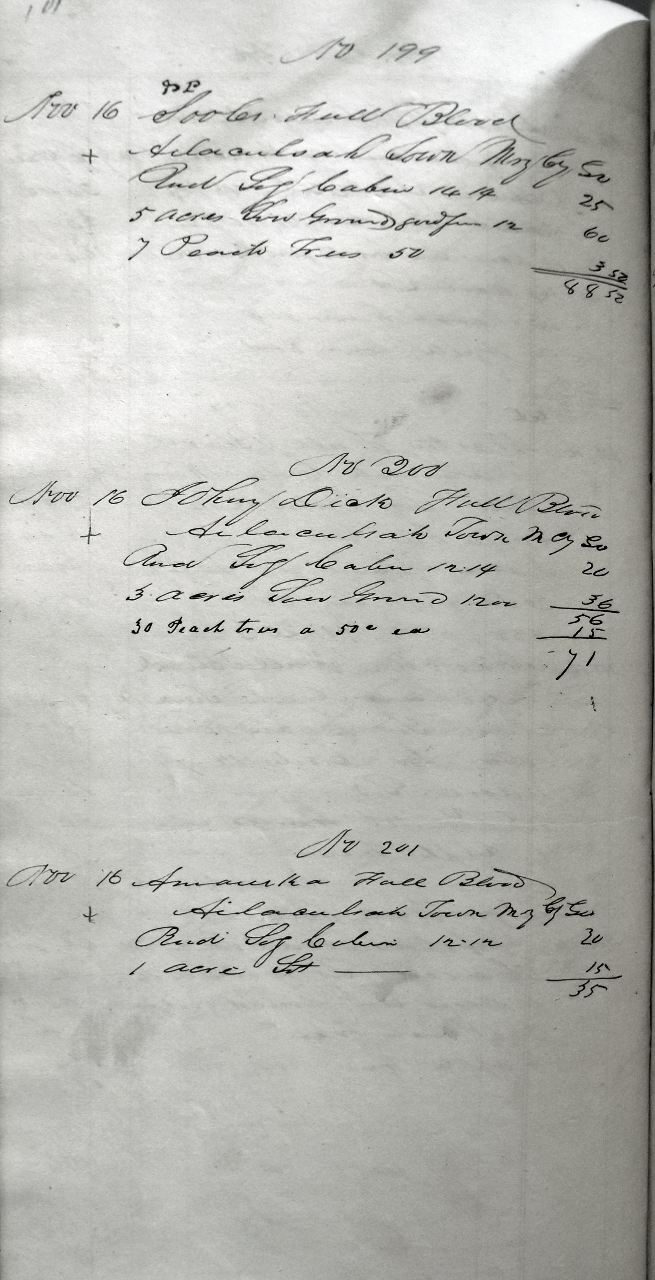 No 199
Nov 16 Sooler Full Blood
+ Ailaculsah Town Mry Cy Go
Rud Log Cabin 14 14 25
5 acres Low Ground good fen 12 60
7 Peach Trees 50 3 50
88 50
No 200
Nov 16 Johny Dick Full Blood
+ Ailaculsah Town M Cy Go
Rud Log Cabin 12.14 20
3 acres Low Ground 1200 36
56
30 Peach trees a 50c ea 15
71
No 201
Nov 16 Full Blood
+ Ailaculsah Town Mry Cy Go
Rud Log Cabin 12.12 20
1 acre Lot 15
35